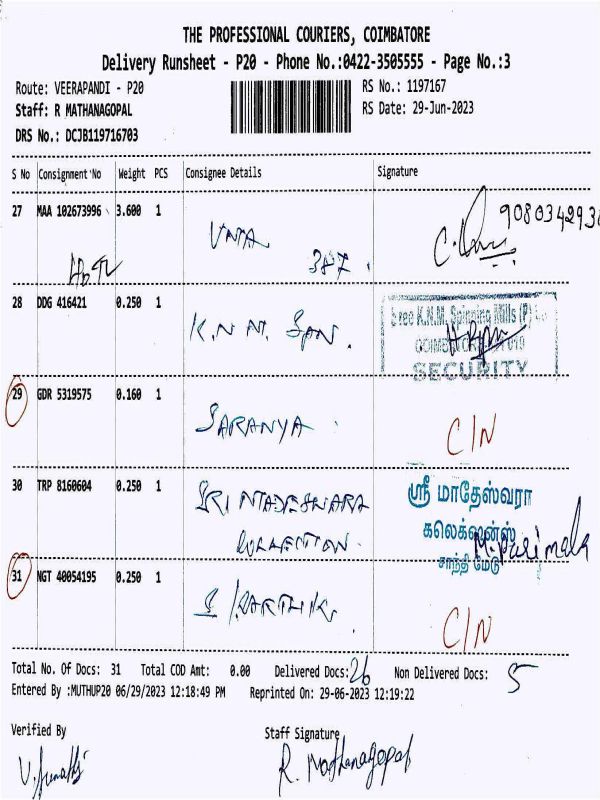 THE PROFESSIONAL COURIERS, COIMBATORE
Delivery Runsheet - P20 - Phone No.:0422-3505555 - Page No.:3
Route: VEERAPANDI - P20 RS No.: 1197167
Staff: R MATHANAGOPAL RS Date: 29-Jun-2023
DRS No.: DCJB119716703
S No Consignment No Weight PCS Consignee Details Signature
27 MAA 102673996 3.600 1
387.
28 DDG 416421 0.250 1 K.N.M. SPN.
Sree K.N.M. Spinning Mills (P)
SECURITY
29 GDR 5319575 0.160 1 SARANYA C/N
30 TRP 8160604 0.250 1 SRI MADESHWARA
COLLECTION
ஸ்ரீ மாதேஸ்வரா
கலெக்ஷன்ஸ்
சாந்தி மேடு
M. Parimala
31 NGT 40054195 0.250 1 S KARTHIK C/N
Total No. Of Docs: 31 Total COD Amt: 0.00 Delivered Docs: 26 Non Delivered Docs: 5
Entered By :MUTHUP20 06/29/2023 12:18:49 PM Reprinted On: 29-06-2023 12:19:22
Verified By Staff Signature
R. Mathanagopal